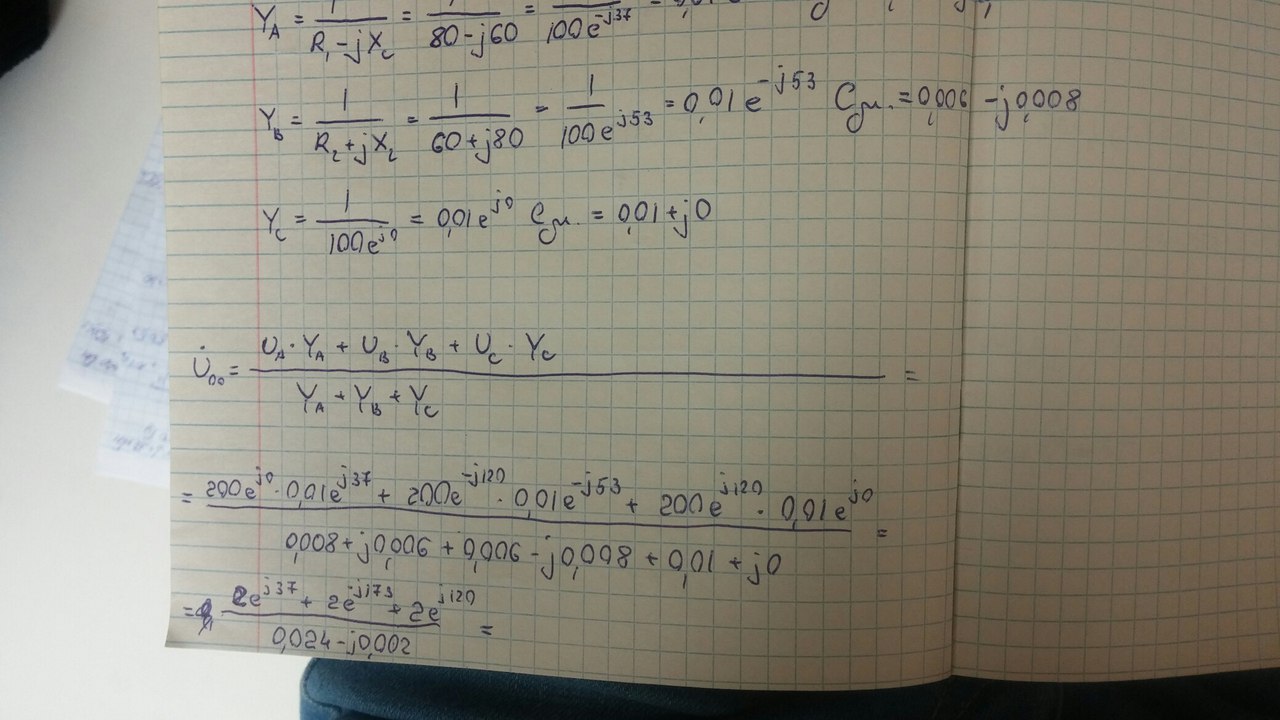 Y_A = 1/(R₁-jX_C) = 1/(80-j60) = 1/(100e^(-j37)) =
Y_B = 1/(R₂+jX_L) = 1/(60+j80) = 1/(100e^(j53)) = 0,01e^(-j53) Cдл. = 0,006 -j0,008
Y_C = 1/(100e^(j0)) = 0,01e^(j0) Cдл. = 0,01+j0
U̇₀₀ = (U_A·Y_A + U_B·Y_B + U_C·Y_C)/(Y_A+Y_B+Y_C) =
= (200e^(j0)·0,01e^(j37) + 200e^(-j120)·0,01e^(-j53) + 200e^(j120)·0,01e^(j0))/(0,008+j0,006+0,006-j0,008+0,01+j0) =
= (2e^(j37) + 2e^(-j173) + 2e^(j120))/(0,024-j0,002) =